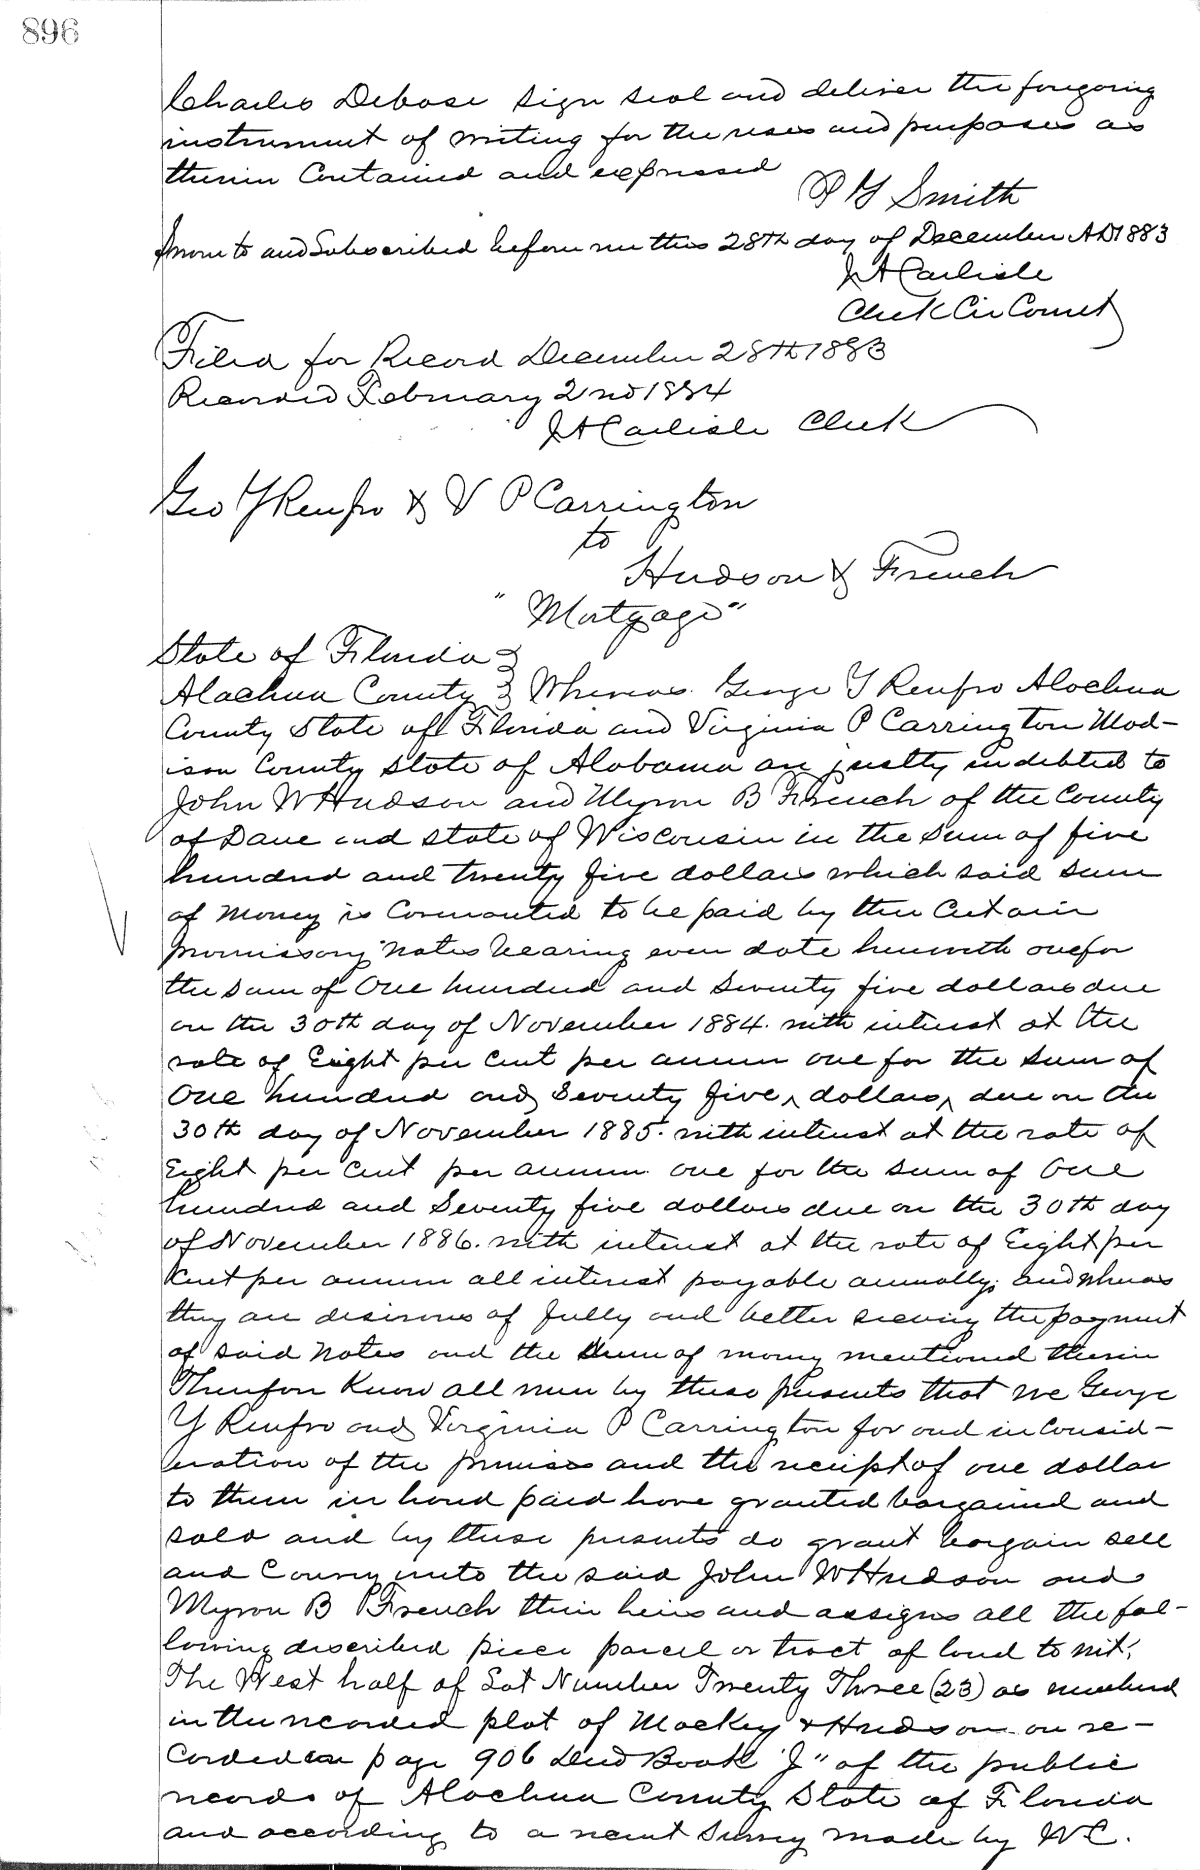 896
Charles Debose sign seal and deliver the foregoing
instrument of writing for the uses and purposes as
therein Contained and expressed
P G Smith
Sworn to and Subscribed before me this 28th day of December AD1883
J A Carlisle
Clerk Cir Court
Filed for Record December 28th 1883
Recorded February 2nd 1884
J A Carlisle Clerk
Geo Y Renfro & V P Carrington
to
Hudson & French
"Mortgage"
State of Florida
Alachua County Whereas George Y Renfro Alachua
County State of Florida and Virginia P Carrington Mad-
ison County State of Alabama are justly indebted to
John W Hudson and Myron B French of the County
of Dane and State of Wisconsin in the Sum of five
hundred and twenty five dollars which said sum
of Money is Covenanted to be paid by three Certain
promissory notes bearing even date herewith one for
the sum of One hundred and Seventy five dollars due
on the 30th day of November 1884. with interest at the
rate of Eight per cent per annum one for the Sum of
One hundred and Seventy five dollars due on the
30th day of November 1885. with interest at the rate of
Eight per cent per annum one for the sum of One
hundred and Seventy five dollars due on the 30th day
of November 1886. with interest at the rate of Eight per
Cent per annum all interest payable annually. and whereas
they are desirous of fully and better securing the payment
of said Notes and the Sum of money mentioned therein
Therefore Know all men by these presents that we George
Y Renfro and Virginia P Carrington for and in Consid-
eration of the premises and the receipt of one dollar
to them in hand paid have granted bargained and
sold and by these presents do grant bargain sell
and Convey unto the said John W Hudson and
Myron B French their heirs and assigns all the fol-
lowing described piece parcel or tract of land to wit,
The West half of Lot Number Twenty Three (23) as numbered
in the recorded plat of Mackey & Hudson on re-
corded on page 906 Deed Book "J" of the public
records of Alachua County State of Florida
and according to a recent Survey made by W C.